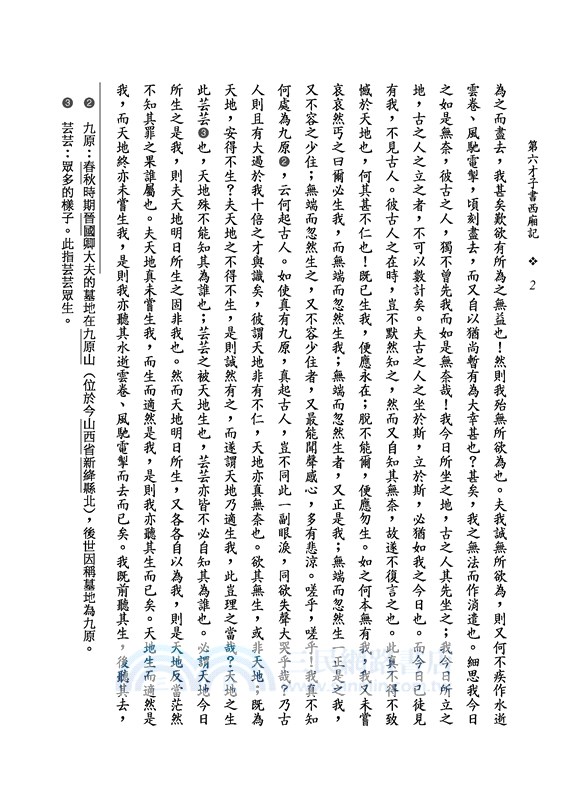 第六才子書西廂記 ❖ 2
為之而盡去，我甚矣歎欲有所為之無益也！然則我殆無所欲為也。夫我誠無所欲為，則又何不疾作水逝
雲卷、風馳電掣，頃刻盡去，而又自以猶尚暫有為大幸甚也？甚矣，我之無法而作消遣也。細思我今日
之如是無奈，彼古之人，獨不曾先我而如是無奈哉！我今日所坐之地，古之人其先坐之；我今日所立之
地，古之人之立之者，不可以數計矣。夫古之人之坐於斯，立於斯，必猶如我之今日也。而今日已徒見
有我，不見古人。彼古人之在時，豈不默然知之，然而又自知其無奈，故遂不復言之也。此真不得不致
憾於天地也，何其甚不仁也！既已生我，便應永在；脫不能爾，便應勿生。如之何本無有我，我又未嘗
哀哀然丐之曰爾必生我，而無端而忽然生我；無端而忽然生者，又正是我；無端而忽然生一正是之我，
又不容之少住；無端而忽然生之，又不容少住者，又最能聞聲感心，多有悲涼。嗟乎，嗟乎！我真不知
何處為九原❷，云何起古人。如使真有九原，真起古人，豈不同此一副眼淚，同欲失聲大哭乎哉？乃古
人則且有大過於我十倍之才與識矣，彼謂天地非有不仁，天地亦真無奈也。欲其無生，或非天地；既為
天地，安得不生？夫天地之不得不生，是則誠然有之，而遂謂天地乃適生我，此豈理之當哉？天地之生
此芸芸❸也，天地殊不能知其為誰也；芸芸之被天地生也，芸芸亦皆不必自知其為誰也。必謂天地今日
所生之是我，則夫天地明日所生之固非我也。然而天地明日所生，又各各自以為我，則是天地反當茫然
不知其罪之果誰屬也。夫天地真未嘗生我，而生而適然是我，是則我亦聽其生而已矣。天地生而適然是
我，而天地終亦未嘗生我，是則我亦聽其水逝雲卷、風馳電掣而去而已矣。我既前聽其生，後聽其去，
❷ 九原：春秋時期晉國卿大夫的墓地在九原山（位於今山西省新絳縣北），後世因稱墓地為九原。
❸ 芸芸：眾多的樣子。此指芸芸眾生。